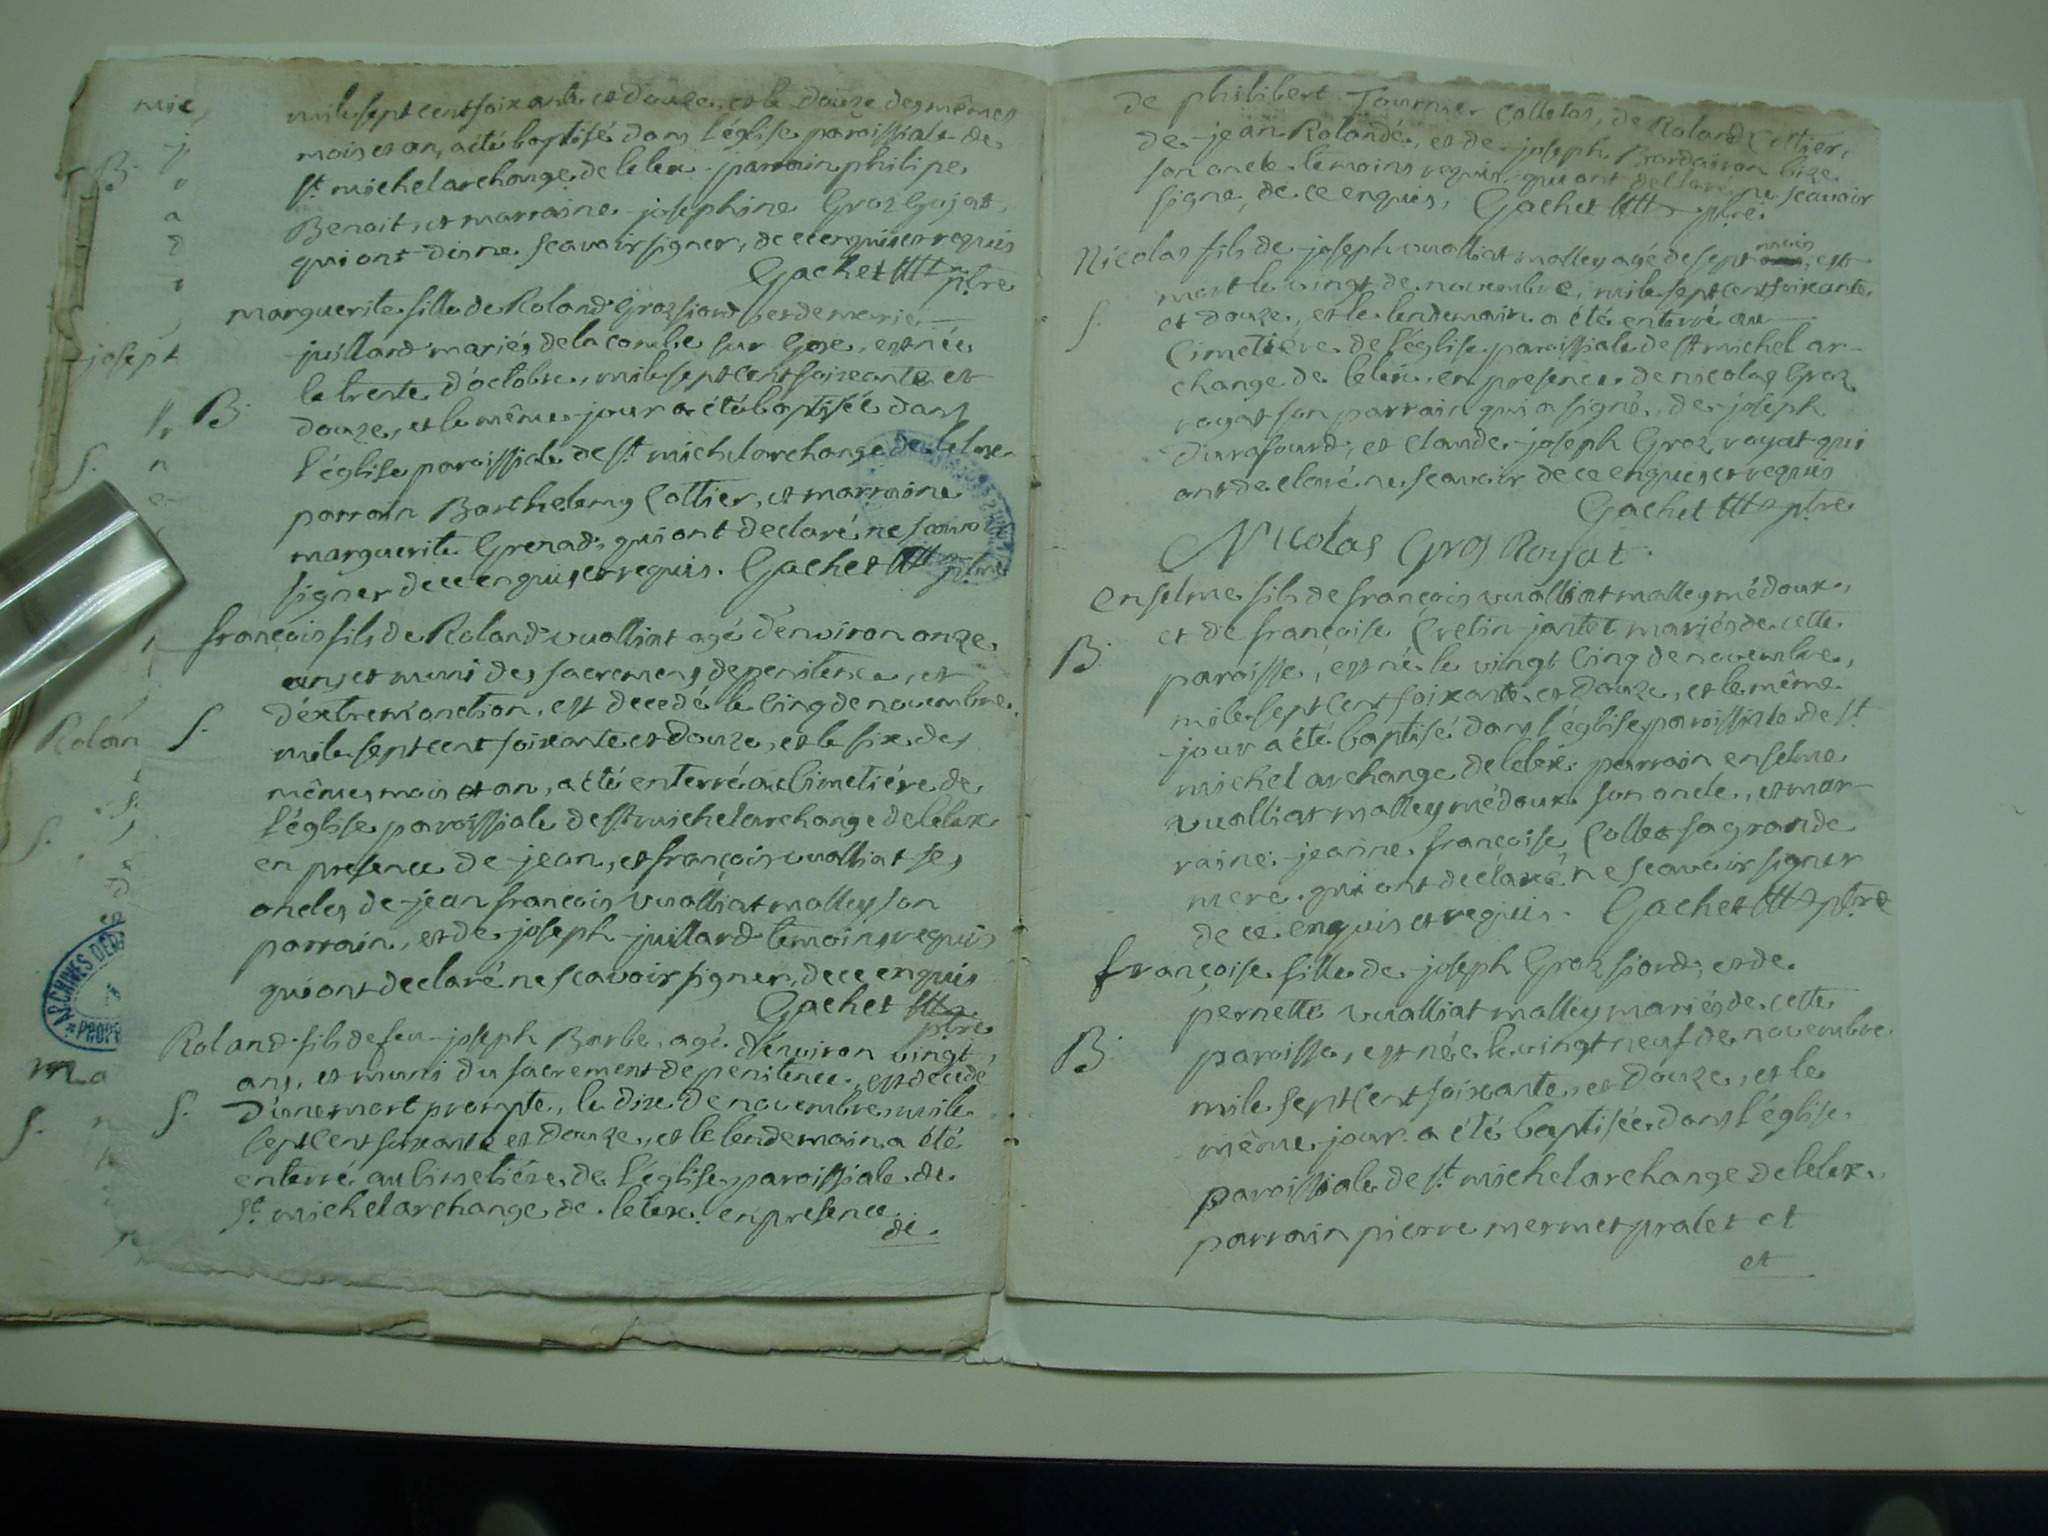 mile sept cent soixante et douze, et le douze des mêmes
mois et an, a été baptisé dans l'église paroissiale de
St. michel archange de lelex. parrain philipe
Benoit, et marraine josephine Groz Gojat,
qui ont dis ne scavoir signer, de ce enquis et requis
Gachet ptre
marguerite fille de Roland Groz fiord, et de marie
juillard mariés de la combe sur Gex, est née
le trente d'octobre, mile sept cent soixante et
B. douze, et le même jour a été baptisée dans
l'église paroissiale de St. michel archange de lelex.
parrain Barthelemy Cottier, et marraine
marguerite Grenad, qui ont declaré ne scavoir
signer de ce enquis et requis. Gachet ptre
françois fils de Roland vualliat agé d'environ onze
ans et muni des sacremens de penitence, et
S. d'extremonction, est decedé le cinq de novembre
mile sept cent soixante et douze, et le six des
mêmes mois et an, a été enterré au cimetiére de
l'église paroissiale de St michel archange de lelex
en presence de jean, et françois vualliat ses
oncles de jean françois vualliat malley son
parrain, et de joseph juillard temoins requis
qui ont declaré ne scavoir signer, de ce enquis
Gachet ptre
Roland fils de feu joseph Barbe, agé d'environ vingt
ans, et muni du sacrement de penitence, est decedé
S. d'une mort prompte, le dix de novembre mile
sept cent soixante et douze, et le lendemain a été
enterré au cimetiére de l'église paroissiale de
St. michel archange de lelex en presence
de
de philibert Tournier Colletas, de Roland Cottier,
de jean Rolandé, et de joseph
son oncle temoins requis, qui ont declaré ne scavoir
signe, de ce enquis, Gachet ptre.
Nicolas fils de joseph vualliat malley agé de sept mois, est
mort le vingt de novembre, mile sept cent soixante
S. et douze, et le lendemain a été enterré au
Cimetiére de l'église paroissiale de St michel ar-
change de lelex en presence de nicolas Groz
royat son parrain qui a signé, de joseph
Durafourd, et claude joseph Groz royat qui
ont declaré ne scavoir de ce enquis et requis
Gachet ptre
Nicolas Gros Royat.
enselme fils de françois vualliat malley médoux,
et de françoise Cretin jantet mariés de cette
B. paroisse, est né le vingt cinq de novembre,
mile sept cent soixante, et douze, et le même
jour a été baptisé dans l'église paroissiale de St
michel archange de lelex. parrain enselme
vualliat malley médoux son oncle, et mar-
raine jeanne françoise Collet sa grande
mere. qui ont declaré ne scavoir signer
de ce enquis et requis. Gachet ptre
françoise fille de joseph Groz fiord, et de
pernette vualliat malley mariés de cette
B. paroisse, est née le vingt neuf de novembre
mile sept cent soixante, et douze, et le
même jour a été baptisée dans l'église
paroissiale de St. michel archange de lelex.
parrain pierre mermet pralet et
et